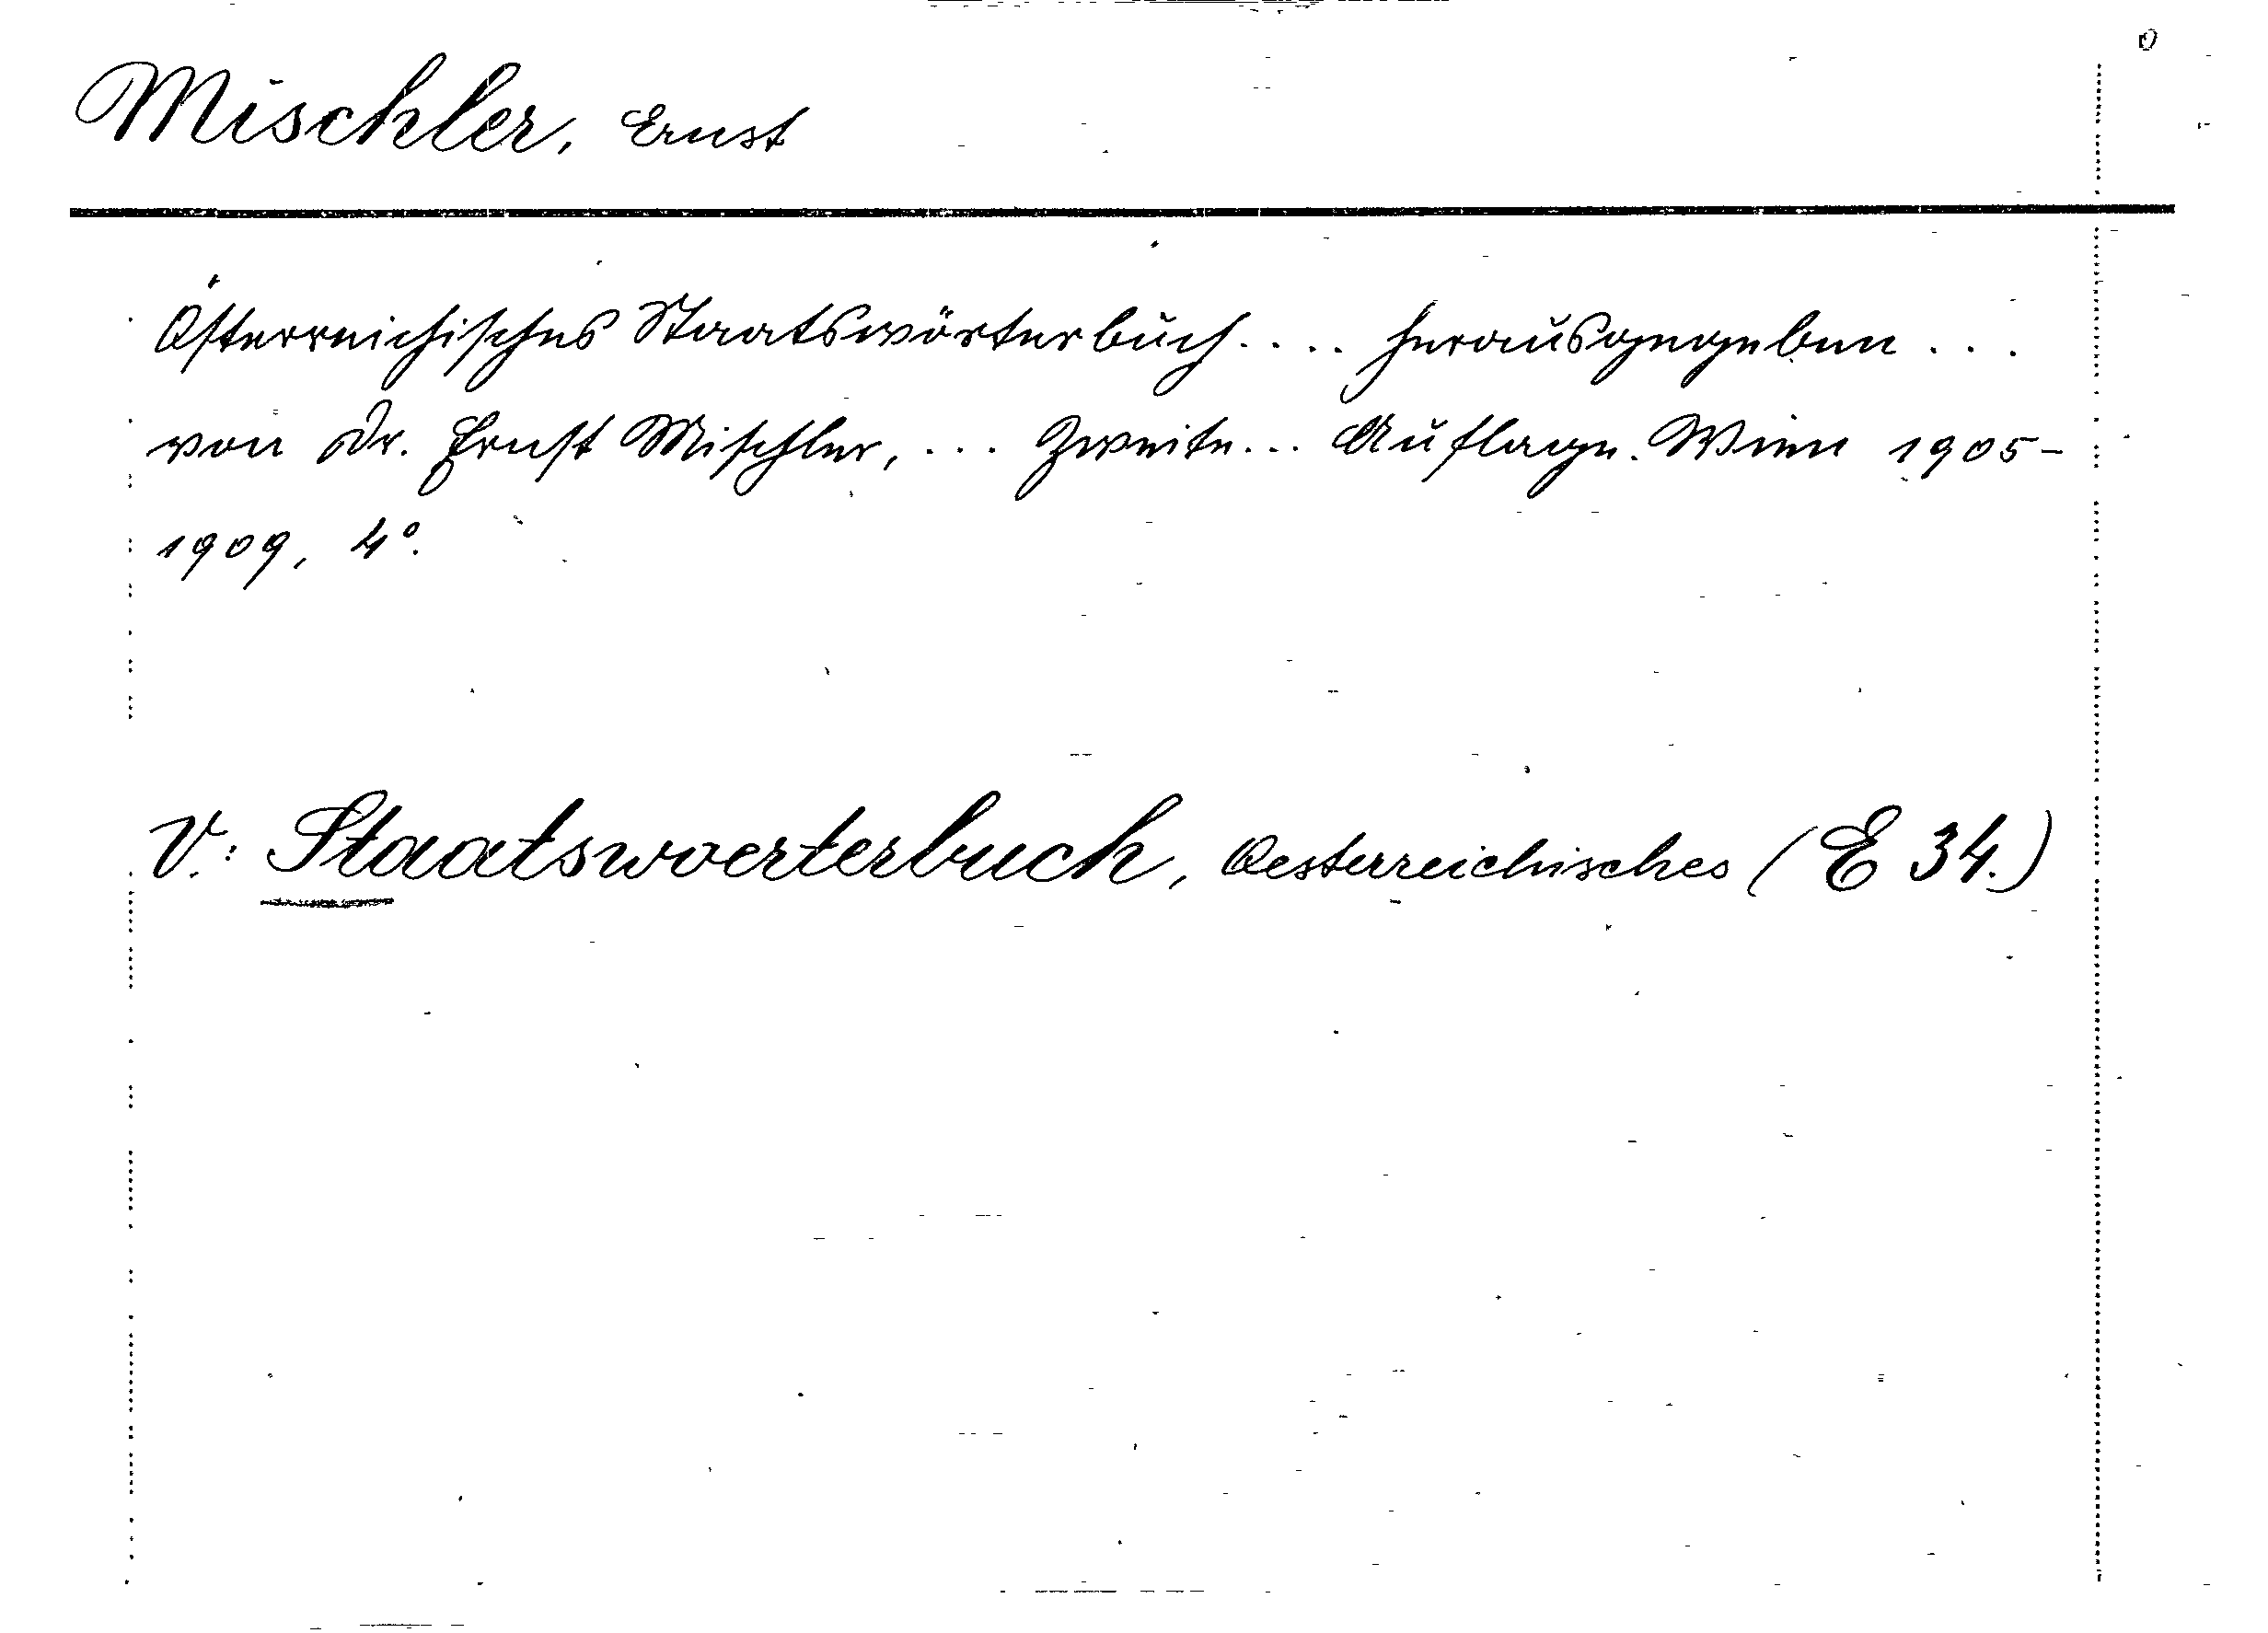 Mischler, Ernst
Österreichisches Staatswörterbuch.... herausgegeben ...
von Dr. Ernst Mischler, ... Zweite... Auflage. Wien 1905-
1909, 4°.
V.: Staatswoerterbuch, Oesterreichisches (E 34.)